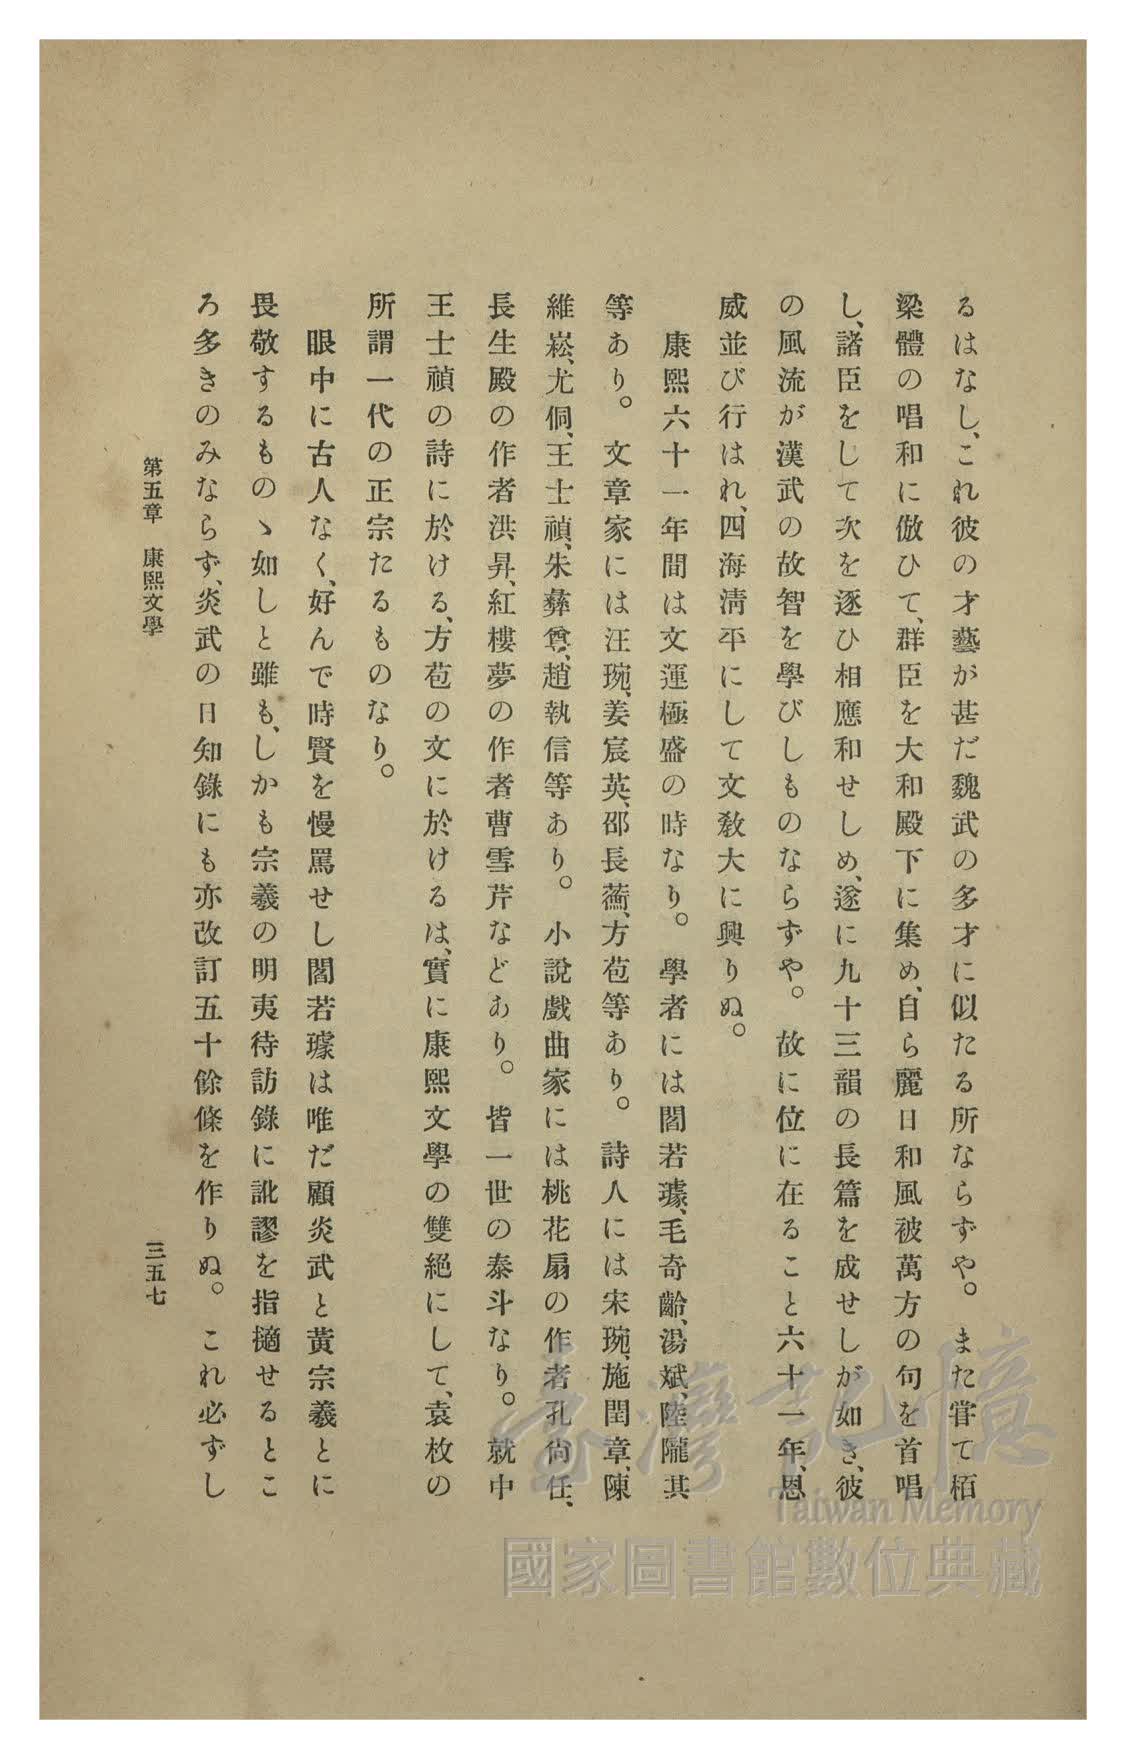 るはなし、これ彼の才藝が甚だ魏武の多才に似たる所ならずや。また甞て栢
梁體の唱和に倣ひて、群臣を大和殿下に集め、自ら麗日和風被萬方の句を首唱
し、諸臣をして次を逐ひ相應和せしめ、遂に九十三韻の長篇を成せしが如き、彼
の風流が漢武の故智を學びしものならずや。故に位に在ること六十一年、恩
威並び行はれ、四海淸平にして文敎大に興りぬ。
康熙六十一年間は文運極盛の時なり。學者には閻若璩、毛奇齡、湯斌、陸隴其
等あり。文章家には汪琬、姜宸英、邵長蘅、方苞等あり。詩人には宋琬、施閏章、陳
維崧、尤侗、王士禎、朱彝尊、趙執信等あり。小說戲曲家には桃花扇の作者孔尙任、
長生殿の作者洪昇、紅樓夢の作者曹雪芹などあり。皆一世の泰斗なり。就中
王士禎の詩に於ける、方苞の文に於けるは、實に康熙文學の雙絕にして、袁枚の
所謂一代の正宗たるものなり。
眼中に古人なく、好んで時賢を慢罵せし閻若璩は唯だ顧炎武と黃宗羲とに
畏敬するものゝ如しと雖も、しかも宗羲の明夷待訪錄に訛謬を指擿せるとこ
ろ多きのみならず、炎武の日知錄にも亦改訂五十餘條を作りぬ。これ必ずし
第五章　康熙文學
三五七
臺灣記憶
Taiwan Memory
國家圖書館數位典藏